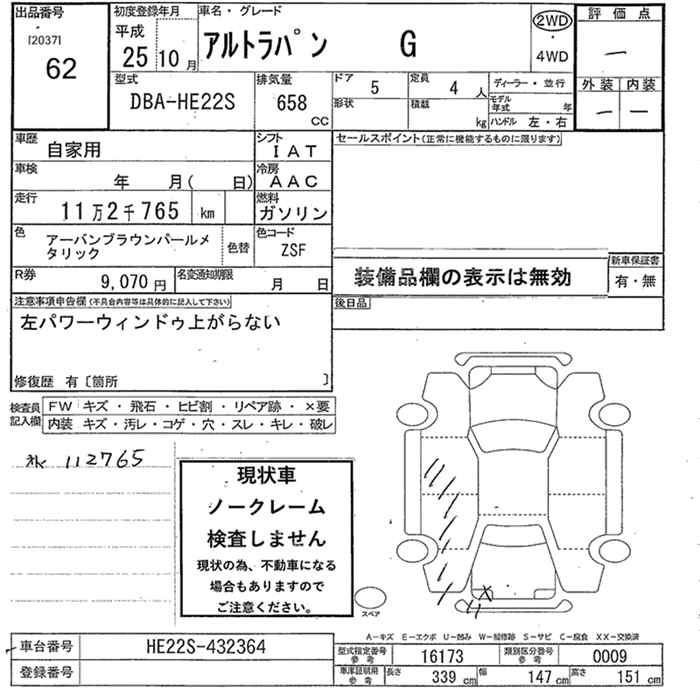 出品番号
[2037]
62
初度登録年月
平成
25年10月
車名・グレード
アルトラパン G
2WD
・
4WD
評価点
—
外装 内装
— —
型式
DBA-HE22S
排気量
658
CC
ドア 5
定員 4人
形状
積載 kg
ディーラー・並行
モデル年式 年
ハンドル 左・右
車歴
自家用
シフト
IAT
車検
年 月( 日)
冷房
AAC
走行
11万2千765 km
燃料
ガソリン
色
アーバンブラウンパールメ
タリック
色替
色コード
ZSF
R券
9,070円
名変通知期限
月 日
セールスポイント(正常に機能するものに限ります)
装備品欄の表示は無効
新車保証書
有・無
後日品
注意事項申告欄(不具合内容等は具体的に記入して下さい)
左パワーウィンドゥ上がらない
修復歴 有〔箇所 〕
検査員
記入欄
FW キズ・飛石・ヒビ割・リペア跡・×要
内装 キズ・汚レ・コゲ・穴・スレ・キレ・破レ
112765
現状車
ノークレーム
検査しません
現状の為、不動車になる
場合もありますので
ご注意ください。
スペア
A-キズ E-エクボ U-凹み W-補修跡 S-サビ C-腐食 XX-交換済
車台番号
HE22S-432364
登録番号
型式指定番号
参考
16173
類別区分番号
参考
0009
車庫証明用
参考
長さ 339cm
幅 147cm
高さ 151cm